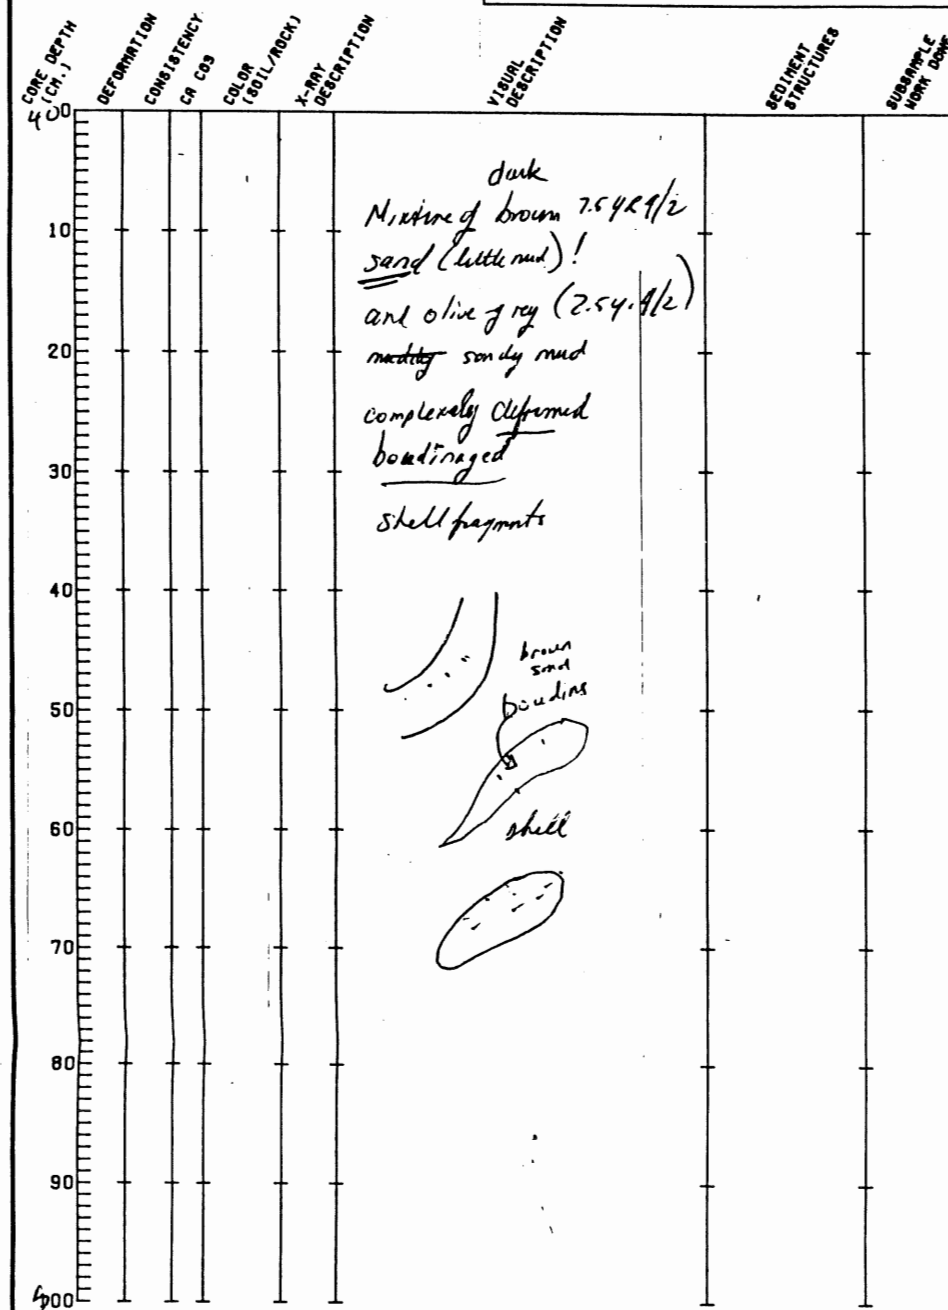 CORE DEPTH (CM.)
DEFORMATION
CONSISTENCY
CA CO3
COLOR (SOIL/ROCK)
X-RAY DESCRIPTION
VISUAL DESCRIPTION
SEDIMENT STRUCTURES
SUBSAMPLE WORK DONE
400
dark
Mixture of brown 7.5YR 4/2
10
sand (little mud)!
and olive grey (2.5Y.4/2)
20
muddy sandy mud
completely deformed
boudinaged
30
shell fragments
40
brown
sand
boudins
50
shell
60
70
80
90
00